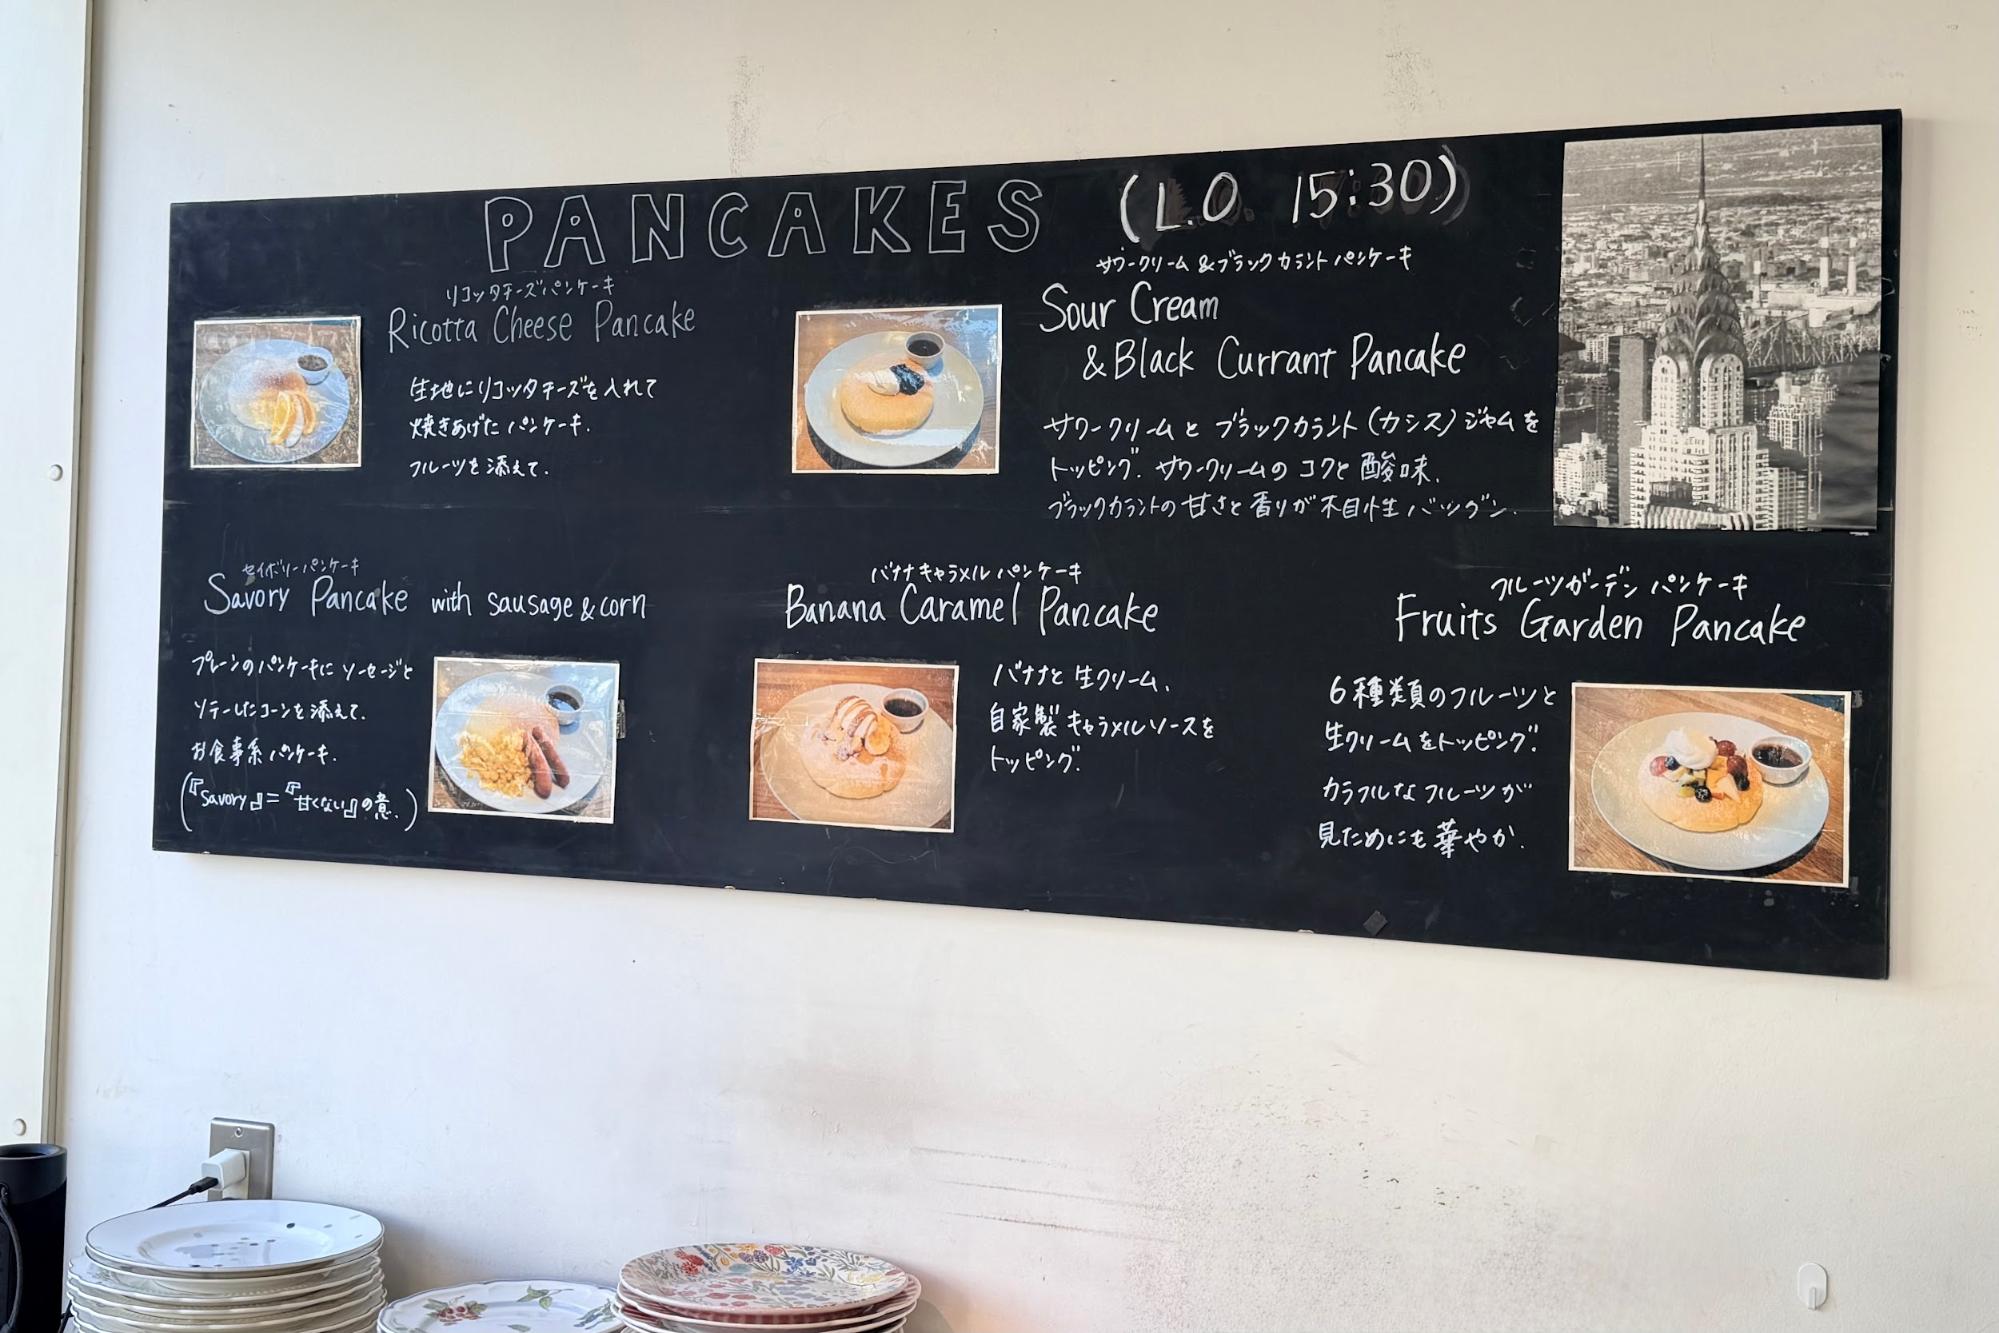 PANCAKES (L.O. 15:30)
リコッタチーズパンケーキ
Ricotta Cheese Pancake
生地にリコッタチーズを入れて
焼きあげたパンケーキ.
フルーツを添えて.
サワークリーム&ブラックカラントパンケーキ
Sour Cream
& Black Currant Pancake
サワークリームとブラックカラント(カシス)ジャムを
トッピング.サワークリームのコクと酸味.
ブラックカラントの甘さと香りが相性バツグン.
セイボリーパンケーキ
Savory Pancake with sausage & corn
プレーンのパンケーキにソーセージと
ソテーしたコーンを添えて.
お食事系パンケーキ.
(『Savory』=『甘くない』の意.)
バナナキャラメルパンケーキ
Banana Caramel Pancake
バナナと生クリーム、
自家製キャラメルソースを
トッピング.
フルーツガーデンパンケーキ
Fruits Garden Pancake
6種類のフルーツと
生クリームをトッピング.
カラフルなフルーツが
見ためにも華やか.